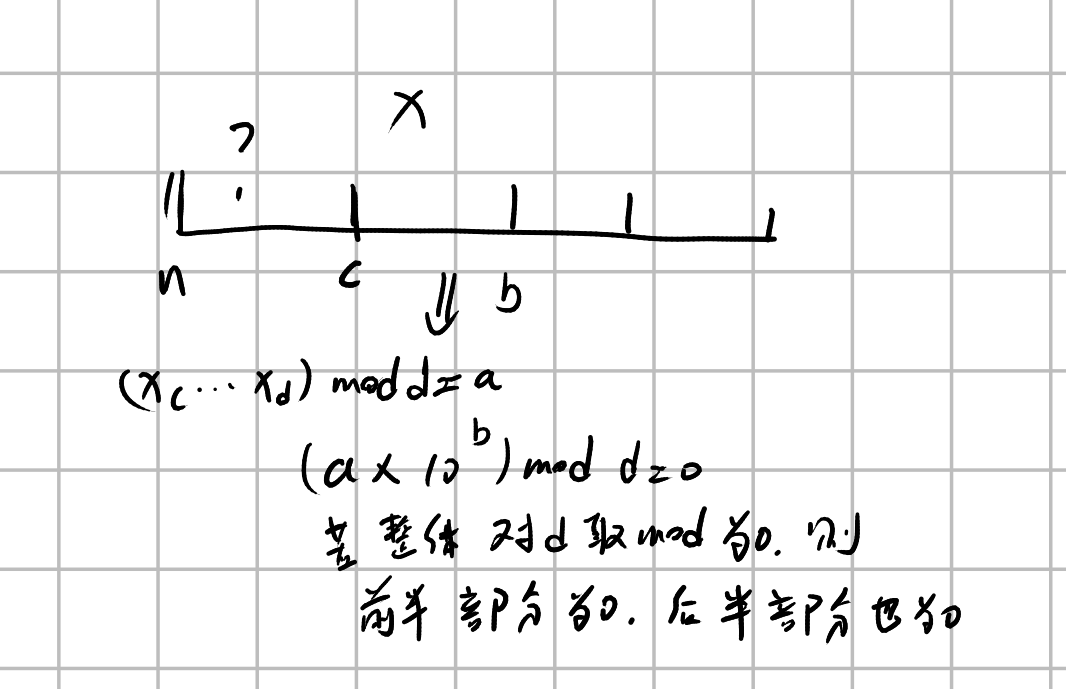 X
?
n c b
(x_c ... x_d) mod d = a
(a × 10^b) mod d = 0
若整体对d取mod为0.则
前半部分为0.后半部分也为0